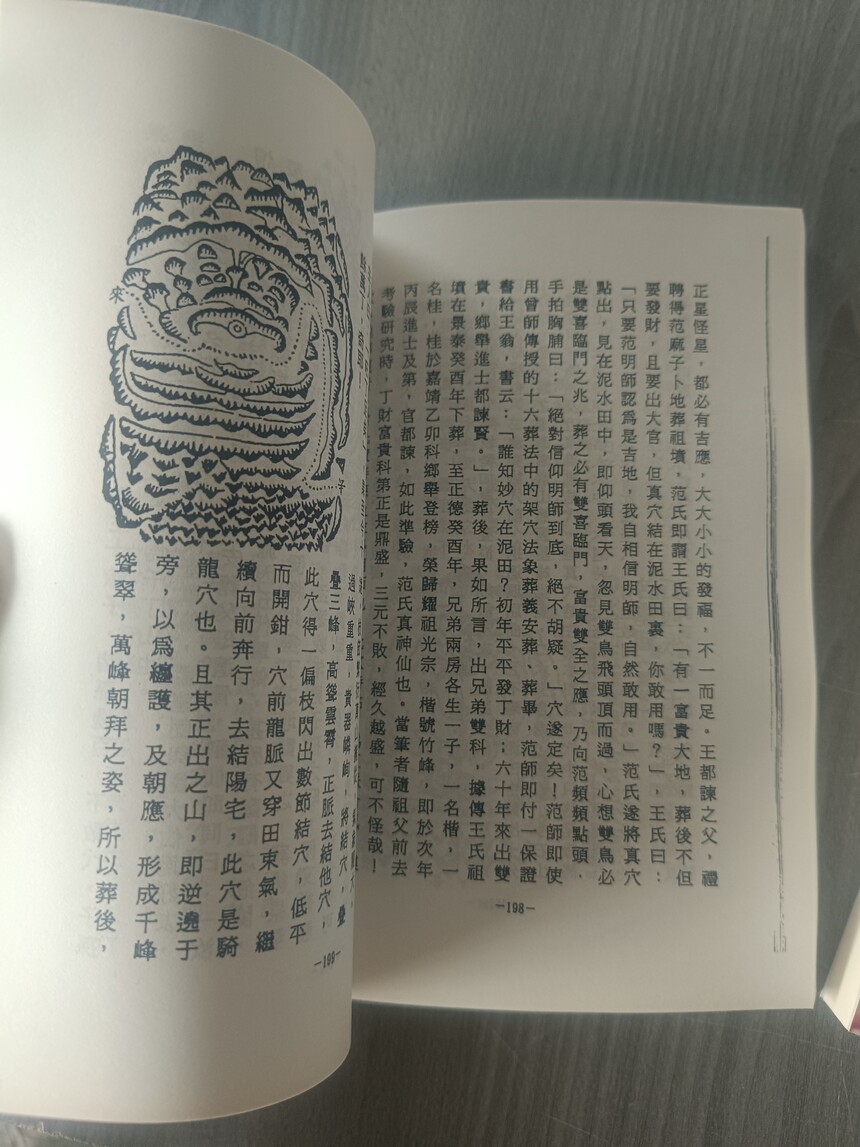 正星怪星，都必有吉應，大大小小的發福，不一而足。王都諫之父，禮
聘得范麻子卜地葬祖墳，范氏即謂王氏曰：「有一富貴大地，葬後不但
要發財，且要出大官，但真穴結在泥水田裏，你敢用嗎？」，王氏曰：
「只要范明師認爲是吉地，我自相信明師，自然敢用。」范氏遂將真穴
點出，見在泥水田中，即仰頭看天，忽見雙鳥飛頭頂而過，心想雙鳥必
是雙喜臨門之兆，葬之必有雙喜臨門，富貴雙全之應，乃向范頻頻點頭．
手拍胸脯曰：「絕對信仰明師到底，絕不胡疑。」穴遂定矣！范師即使
用曾師傳授的十六葬法中的架穴法象葬義安葬、葬畢，范師即付一保證
書給王翁，書云：「誰知妙穴在泥田？初年平平發丁財；六十年來出雙
貴，鄉舉進士都諫賢。」，葬後，果如所言，出兄弟雙科，據傳王氏祖
墳在景泰癸酉年下葬，至正德癸酉年，兄弟兩房各生一子，一名楷，一
名桂，桂於嘉靖乙卯科鄉舉登榜，榮歸耀祖光宗，楷號竹峰，即於次年
丙辰進士及第，官都諫，如此準驗，范氏真神仙也。當筆者隨祖父前去
考驗研究時，丁財富貴科第正是鼎盛，三元不敗，經久越盛，可不怪哉！
—198—
來
子
過峽重重，貴器嶙峋，將結穴，疊
疊三峰，高聳雲霄，正脈去結他穴，
此穴得一偏枝閃出數節結穴，低平
而開鉗，穴前龍脈又穿田束氣，繼
續向前奔行，去結陽宅，此穴是騎
龍穴也。且其正出之山，即逆遶于
旁，以爲纏護，及朝應，形成千峰
聳翠，萬峰朝拜之姿，所以葬後，
—199—